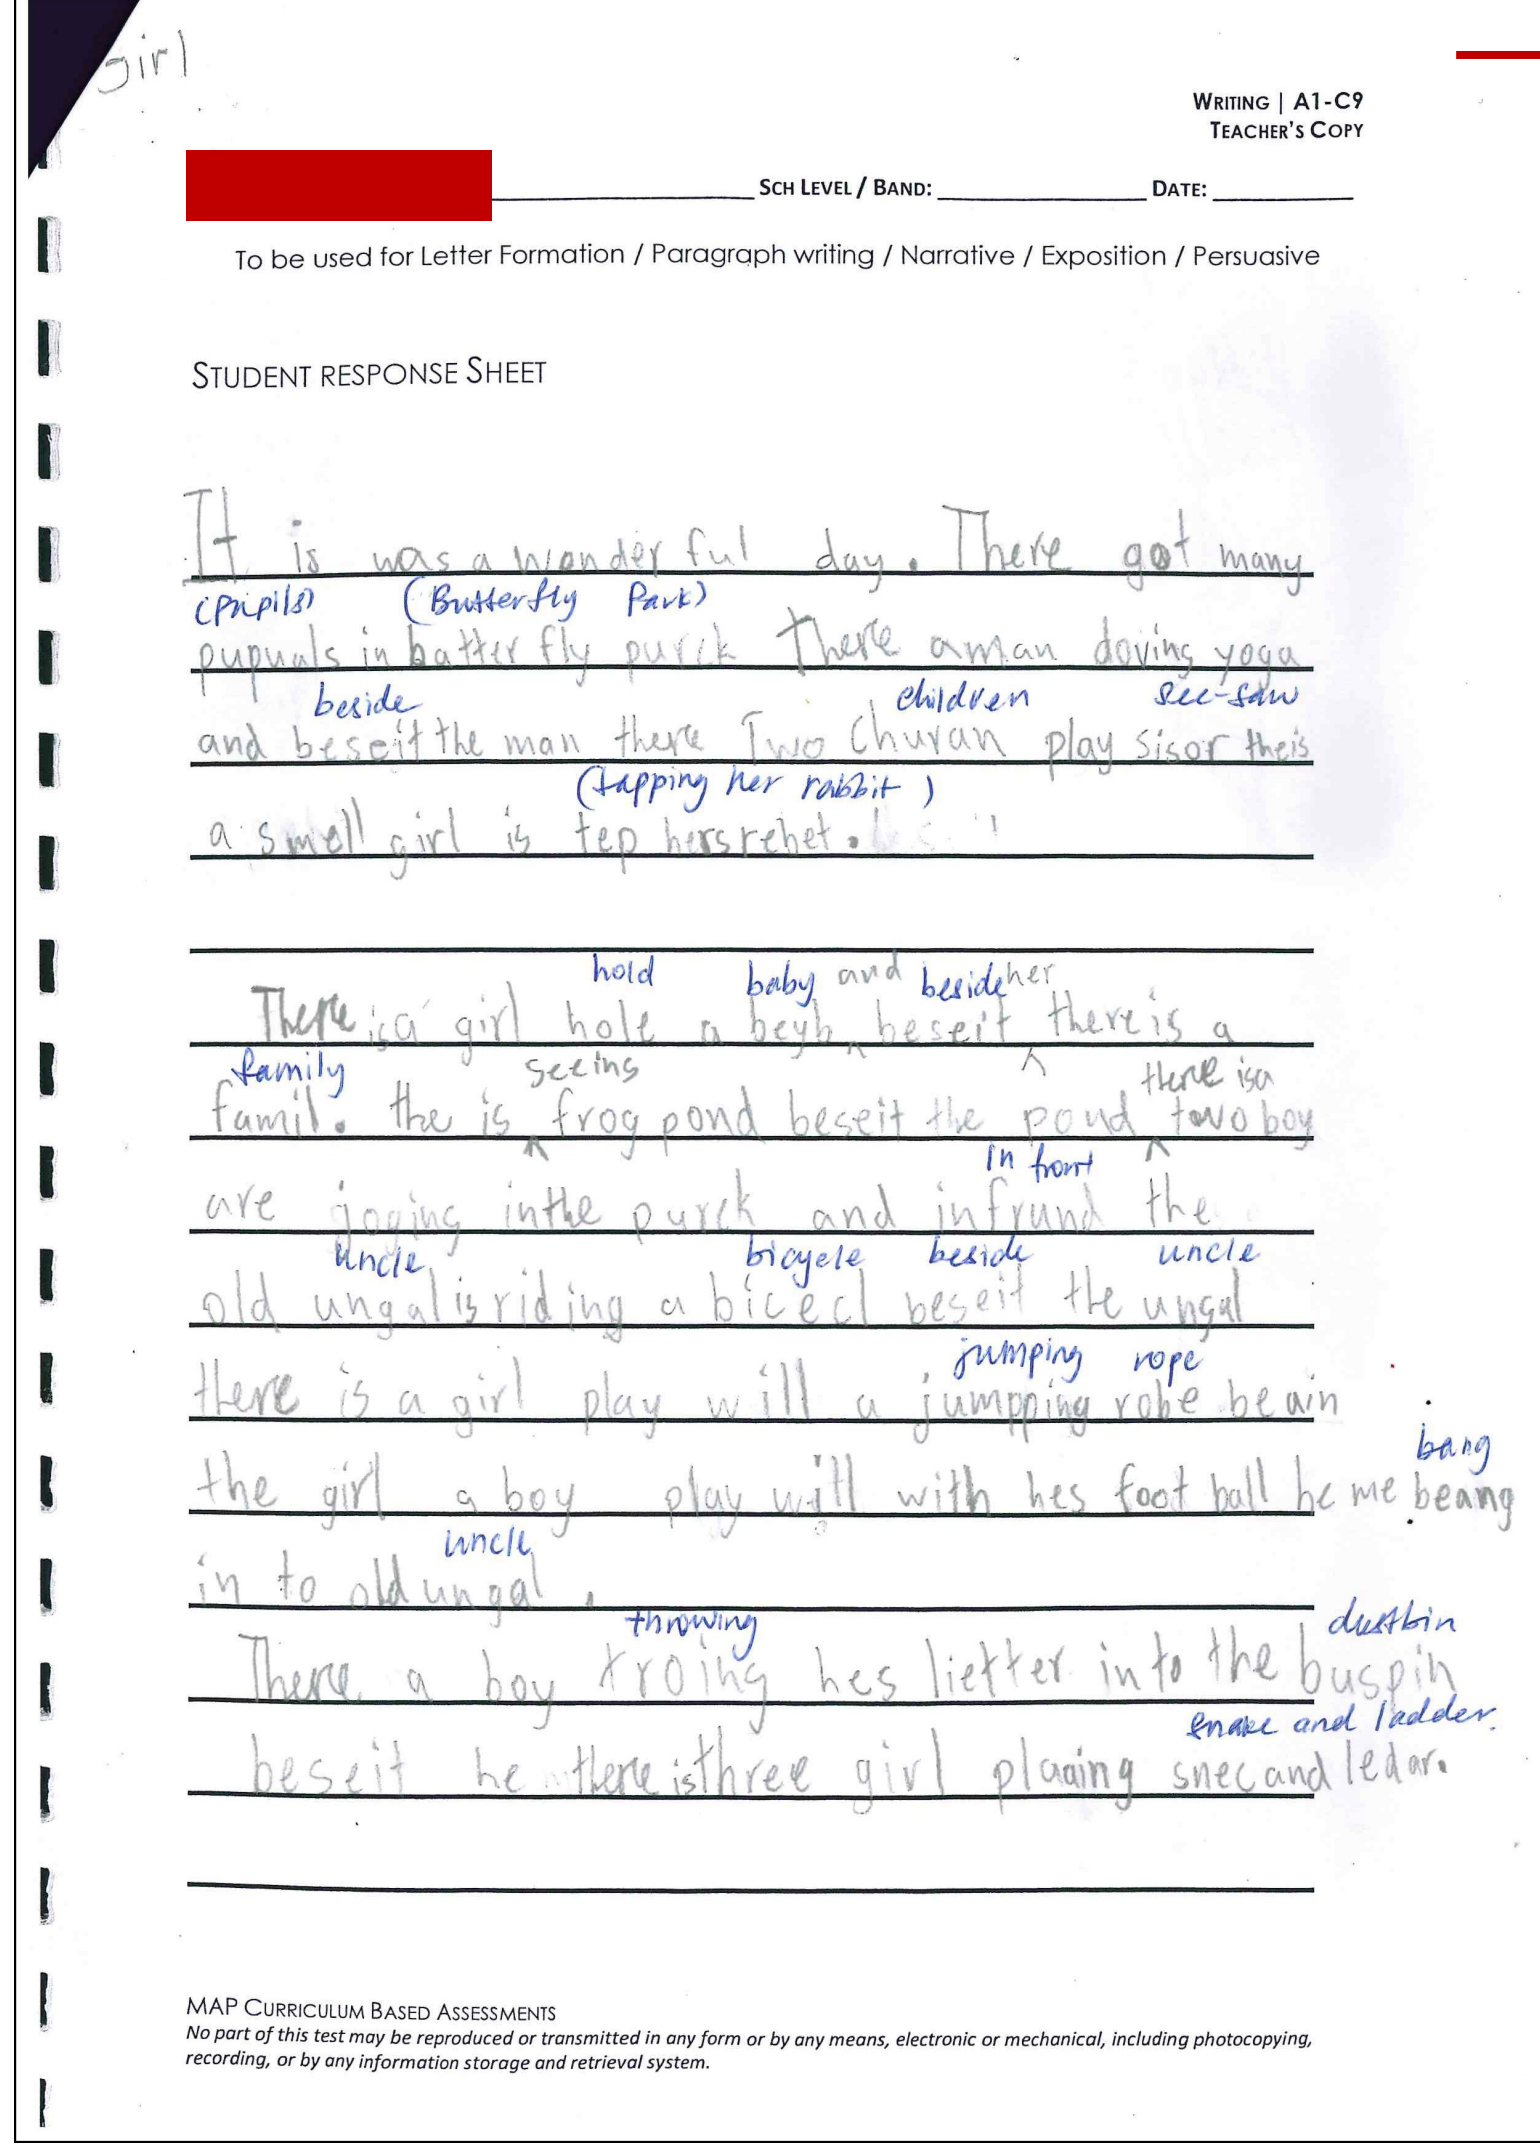 girl
WRITING | A1-C9
TEACHER'S COPY
SCH LEVEL / BAND: DATE:
To be used for Letter Formation / Paragraph writing / Narrative / Exposition / Persuasive
STUDENT RESPONSE SHEET
It is was a wonderful day. There got many
(Pupils) (Butterfly Park)
pupuals in batter fly purck There aman doving yoga
beside children see-saw
and beseit the man there Two Churan play sisor theis
(tapping her rabbit)
a smell girl is tep hers rebet.
hold baby and beside her
There is a girl hole a beyb beseit there is a
family seeing there is a
famil. the is frog pond beseit the pond two boy
in front
are joging in the purck and infrund the
uncle bicycle beside uncle
old ungal is riding a bicecl beseit the ungal
jumping rope
there is a girl play will a jumpping robe beain
bang
the girl a boy play will with hes foot ball he me beang
uncle
in to old ungal.
throwing dustbin
There a boy troing hes lietter in to the buspin
snake and ladder.
beseit he there is three girl plaaing snec and ledar.
MAP CURRICULUM BASED ASSESSMENTS
No part of this test may be reproduced or transmitted in any form or by any means, electronic or mechanical, including photocopying,
recording, or by any information storage and retrieval system.